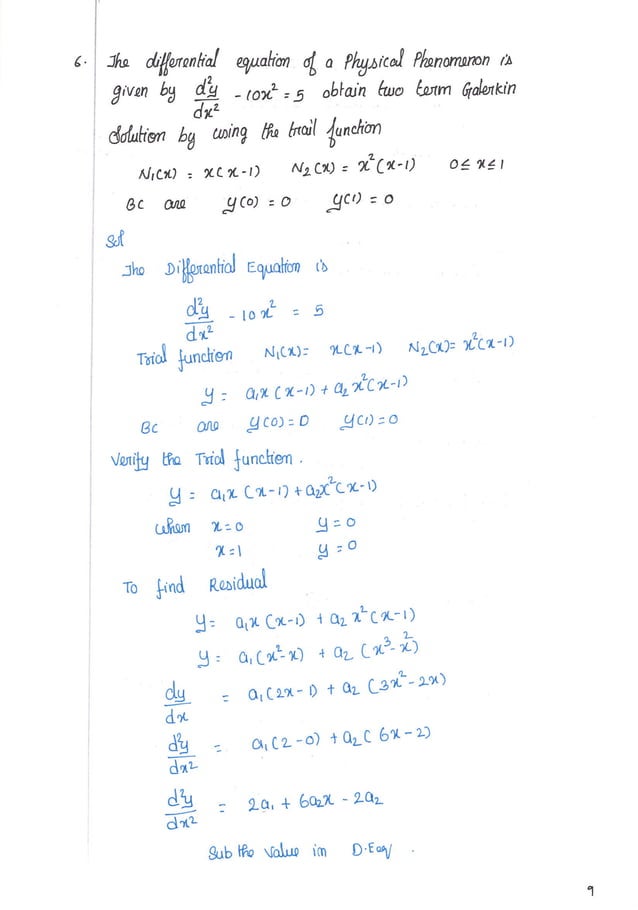 6. The differential equation of a Physical Phenomenon is
given by d²y/dx² - 10x² = 5 obtain two term Galerkin
Solution by using the trail function
N₁(x) = x(x-1) N₂(x) = x²(x-1) 0 ≤ x ≤ 1
BC are y(0) = 0 y(1) = 0
Sol
The Differential Equation is
d²y/dx² - 10x² = 5
Trial function N₁(x) = x(x-1) N₂(x) = x²(x-1)
y = a₁x(x-1) + a₂x²(x-1)
Bc are y(0) = 0 y(1) = 0
Verify the Trial function.
y = a₁x(x-1) + a₂x²(x-1)
when x=0 y=0
x=1 y=0
To find Residual
y = a₁x(x-1) + a₂x²(x-1)
y = a₁(x²-x) + a₂(x³-x²)
dy/dx = a₁(2x-1) + a₂(3x²-2x)
d²y/dx² = a₁(2-0) + a₂(6x-2)
d²y/dx² = 2a₁ + 6a₂x - 2a₂
Sub the value in D.Eqn.
9